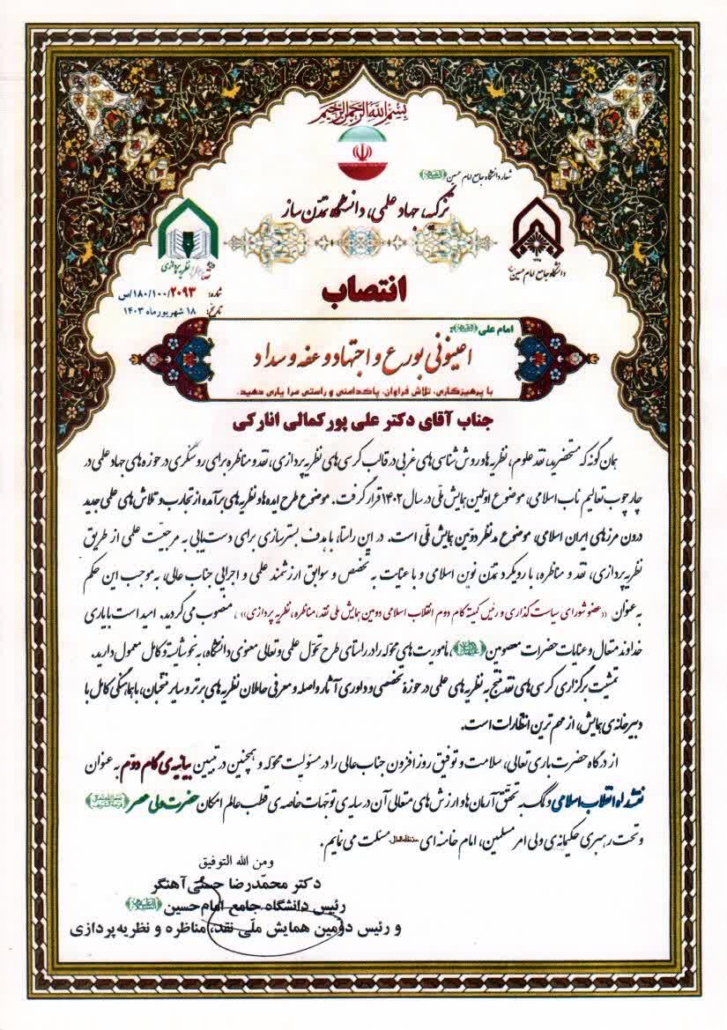 بسم الله الرحمن الرحیم
شعار دانشگاه جامع امام حسین (علیه‌السلام)
تزکیه، جهاد علمی، دانشگاه تمدن ساز
دانشگاه جامع امام حسین
نظریه‌پردازی
انتصاب
شماره: ۱۸۰/۱۰۰/۲۰۹۳/س
تاریخ: ۱۸ شهریورماه ۱۴۰۳
امام علی (علیه‌السلام):
اعینونی بورع و اجتهاد و عفه و سداد
با پرهیزکاری، تلاش فراوان، پاکدامنی و راستی مرا یاری دهید.
جناب آقای دکتر علی پورکمالی انارکی
همان گونه که مستحضرید، نقد علوم، نظریه‌ها و روش شناسی‌های غربی در قالب کرسی‌های نظریه پردازی، نقد و مناظره برای روشنگری در حوزه‌های جهاد علمی در
چارچوب تعالیم ناب اسلامی، موضوع اولین همایش ملی در سال ۱۴۰۲ قرار گرفت. موضوع طرح ایده‌ها و نظریه‌های برآمده از تجارب و تلاش‌های علمی جدید
درون مرزهای ایران اسلامی، موضوع مدنظر دومین همایش ملی است. در این راستا، با هدف بسترسازی برای دست‌یابی به مرجعیت علمی از طریق
نظریه‌پردازی، نقد و مناظره، با رویکرد تمدن نوین اسلامی و با عنایت به تخصص و سوابق ارزشمند علمی و اجرایی جناب عالی، به موجب این حکم
به عنوان «عضو شورای سیاست گذاری و رئیس کمیته گام دوم انقلاب اسلامی دومین همایش ملی نقد، مناظره، نظریه پردازی»، منصوب می‌گردید. امید است با یاری
خداوند متعال و عنایات حضرات معصومین، مأموریت‌های محوله را در راستای طرح تحول علمی و تعالی معنوی دانشگاه، به نحو شایسته و کامل معمول دارید.
تمشیت برگزاری کرسی‌های نقد منتج به نظریه‌های علمی در حوزۀ تخصصی و داوری آثار واصله و معرفی حاملان نظریه‌های برتر و سایر منتخبان، با هماهنگی کامل با
دبیرخانه‌ی همایش، از مهم ترین انتظارات است.
از درگاه حضرت باری تعالی، سلامت و توفیق روزافزون جناب عالی را در مسئولیت محوله و همچنین در تبیین بیانیه‌ی گام دوم به عنوان
نقشه راه انقلاب اسلامی و کمک به تحقق آرمان‌ها و ارزش‌های متعالی آن در سایه‌ی توجهات خاصه‌ی قطب عالم امکان حضرت ولی عصر
و تحت رهبری حکیمانه‌ی ولی امر مسلمین، امام خامنه‌ای مدظله‌العالی مسئلت می نمایم.
ومن الله التوفیق
دکتر محمدرضا حسنی آهنگر
رئیس دانشگاه جامع امام حسین (علیه‌السلام)
و رئیس دومین همایش ملی نقد، مناظره و نظریه‌پردازی